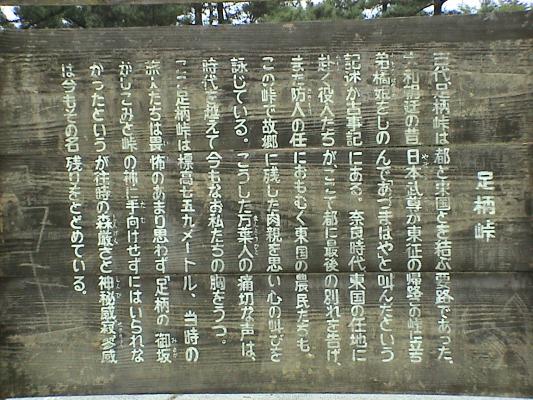 足柄峠
古代足柄峠は都と東国とを結ぶ要路であった。
大和朝廷の昔 日本武尊が東征の帰路この峠に立ち
弟橘姫をしのんで「あづまはやと叫んだという
記述が古事記にある。奈良時代東国の任地に
赴く役人たちが、ここで都に最後の別れを告げ、
また防人の任におもむく東国の農民たちも、
この峠で故郷に残した肉親を思い心の叫びを
詠じている。こうした万葉人の痛切な声は、
時代を越えて今もなお私たちの胸をうつ。
ここ足柄峠は標高七五九メートル、当時の
旅人たちは畏怖のあまり思わず「足柄の御坂
かしこみと峠の神に手向けせずにはいられな
かったというが往時の森厳さと神秘感寂寥感
は今もその名残りをとどめている。